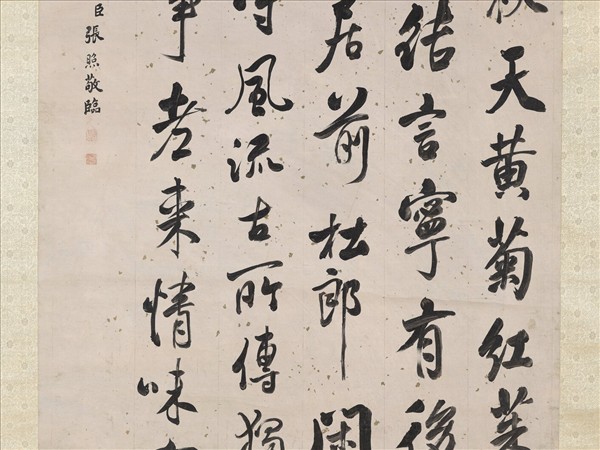 天黄菊紅
結言寧有後
居前杜郎閑
風流古所傳獨
老来情味
臣張照敬臨